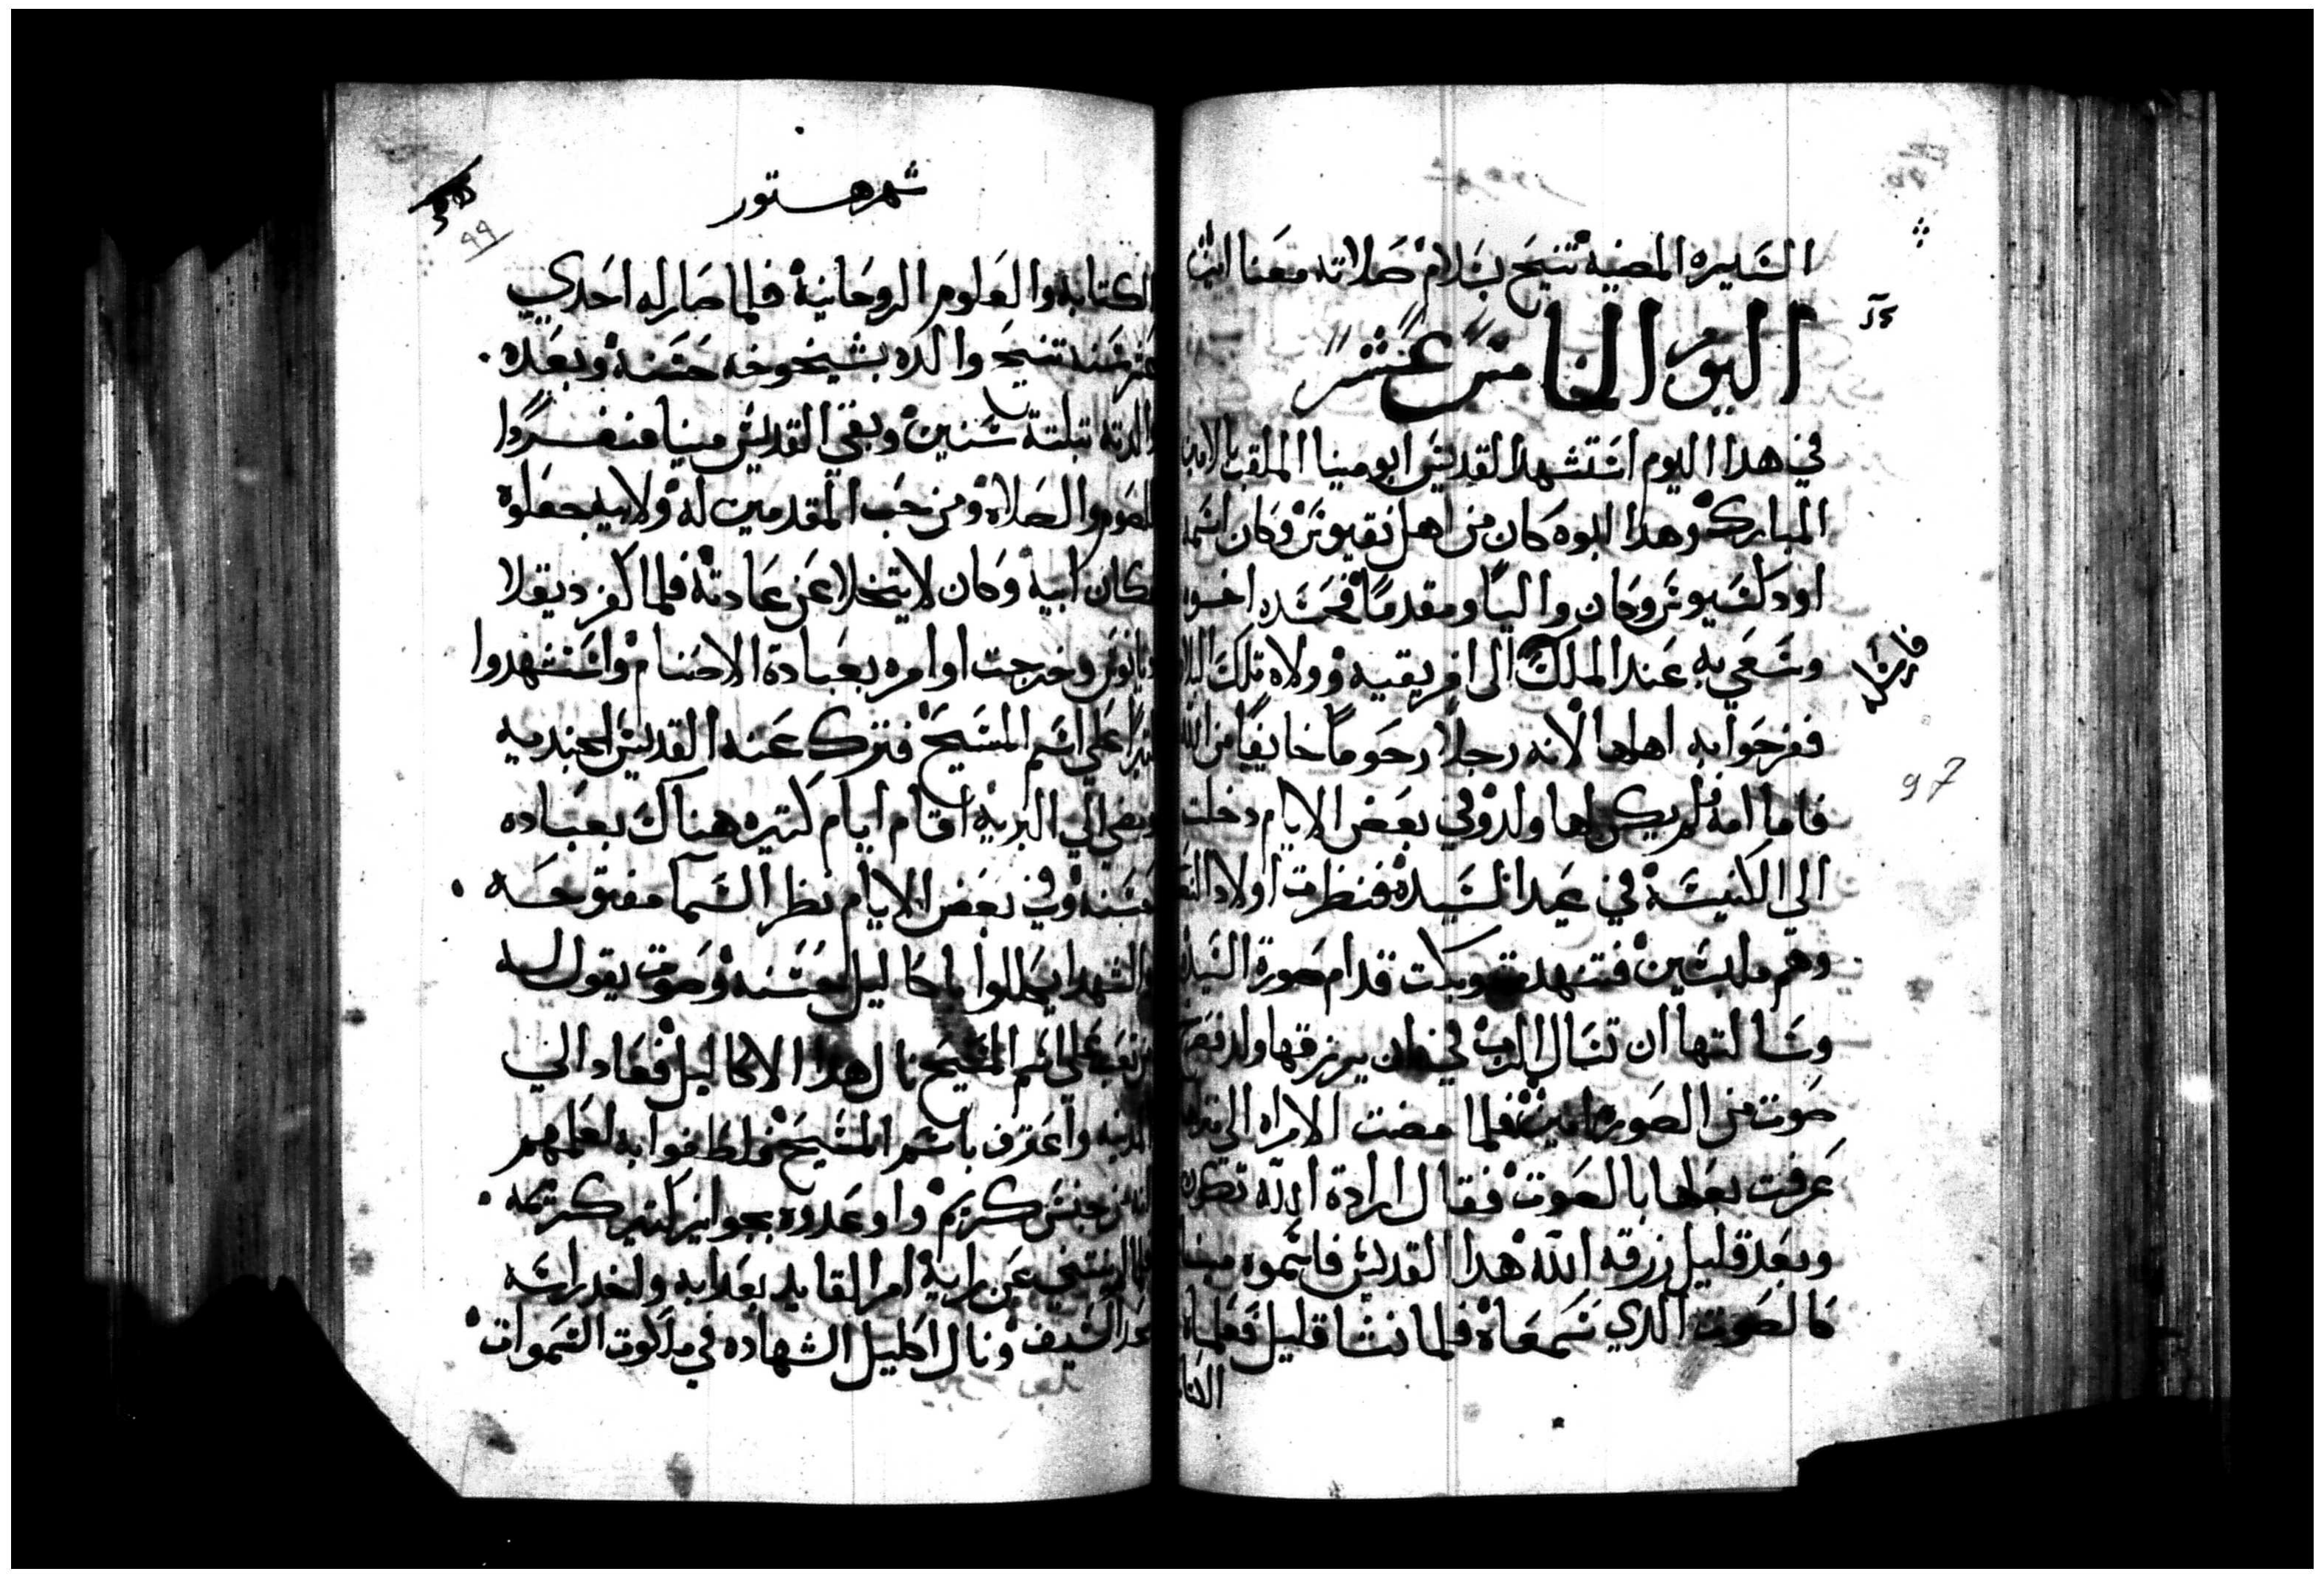 السيره المضيه تنيح بسلام صلاته معنا امين
اليوم الخامس عشر
في هدا اليوم استشهد القديس ابو مينا الملقب بالامين
المبارك وهدا ابوه كان من اهل نقيوس وكان اسمه
اودكسيوس وكان واليًا ومقدمًا فحسده اخوه
وسعي به عند الملك الى افريقيه وولاه تلك البلاد
ففرحوا به اهلها لانه رجلاً رحومًا خايفًا من الله
فاما امه فلم يكن لها ولد وفي بعض الايام دخلت
الي الكنيسه في عيد السيده فنظرت اولاد
وهم ملبسين فتنهدت وبكت قدام صورة السيده
وسالتها ان تسال الرب في ان يرزقها ولد
صوت من الصوره امين فلما مضت الامراه الي
عرفت بعلها بالصوت فقال ارادة الله تكون
وبعد قليل رزقه الله هدا القديس فاسموه مينا
كالصوت الدي سمعاه فلما نشا قليل فعلماه
97
شهر هتور
99
الكتابه والعلوم الروحانية فلما صار له احدي
عشر سنه تنيح والده بشيخوخه حسنه وبعده
والدته بتلتة سنين وبقي القديس مينا منفردًا
للصوم والصلاة ومن حب المقدمين له ولابيه جعلوه
مكان ابيه وكان لا يتخلا عن عادته فلما كفر ديقلا
ديانوس وخرجت اوامره بعبادة الاصنام واستشهدوا
كتيرًا على اسم المسيح فترك عنه القديس الجنديه
ومضي الي البريه اقام ايام كتيره هناك بعباده
حسنه وفي بعض الايام نظر السما مفتوحه
والشهدا يكللوا باكاليل حسنه وصوت يقول له
من تعب على اسم المسيح نال هدا الاكاليل فعاد الي
المدينه واعترف باسم المسيح فلاطفوا به لعلمهم
انه من جنس كريم واوعدوه بجوايز كتير كريمه
فلما لم ينتني عن رايه امر القايد بعدابه واخد راسه
بحد السيف ونال اكليل الشهاده في ملكوت السموات